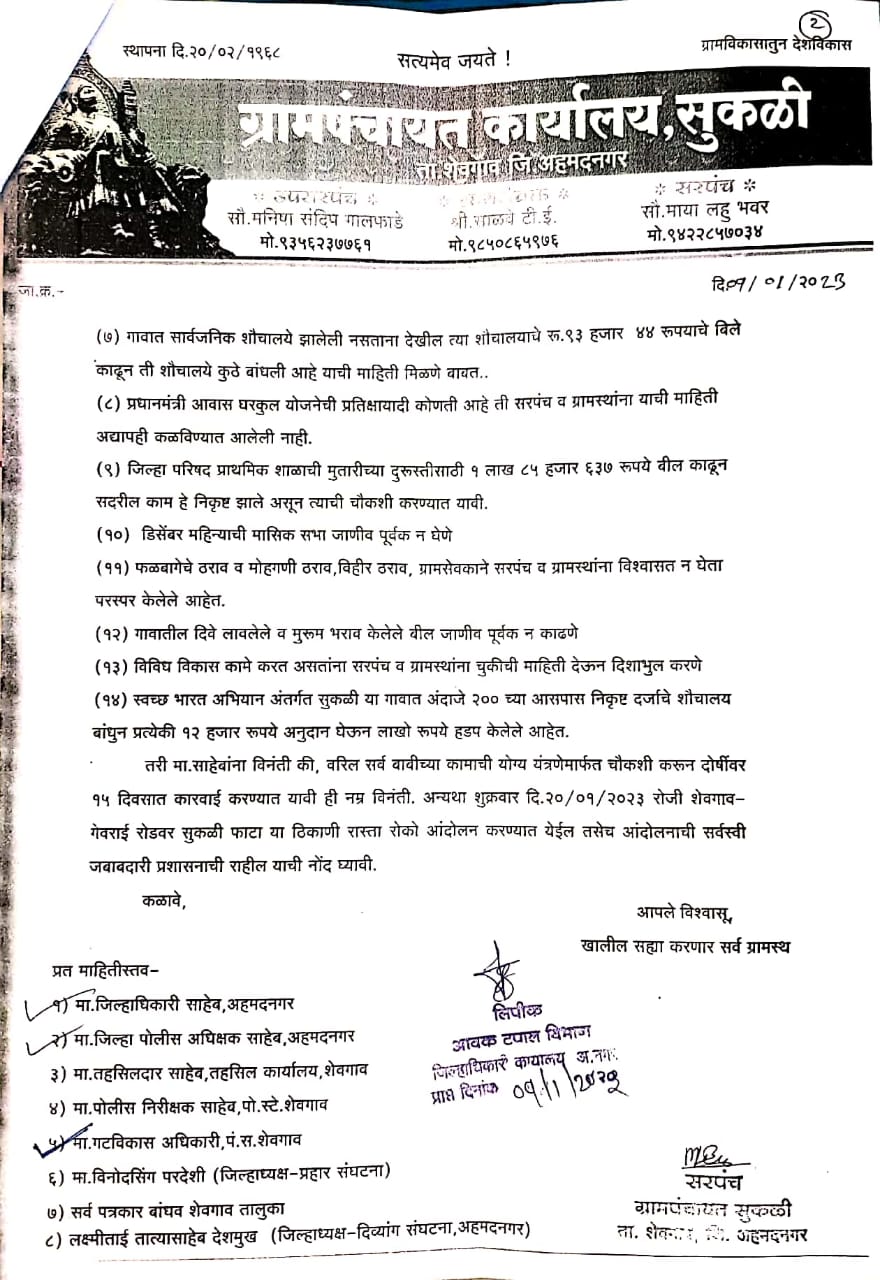 २
स्थापना दि.२०/०२/१९६८
सत्यमेव जयते !
ग्रामविकासातुन देशविकास
ग्रामपंचायत कार्यालय,सुकळी
ता शेवगाव जि अहमदनगर
* उपसरपंच *
* सरपंच *
सौ.मनिषा संदिप गालफाडे
श्री.साळवे टी.ई.
सौ.माया लहु भवर
मो.९३५६२३७७६१
मो.९८५०८६५९७६
मो.९४२२८५७०३४
जा.क्र.-
दि.०९/०१/२०२३
(७) गावात सार्वजनिक शौचालये झालेली नसताना देखील त्या शौचालयाचे रू.९३ हजार ४४ रूपयाचे बिले
काढून ती शौचालये कुठे बांधली आहे याची माहिती मिळणे बाबत..
(८) प्रधानमंत्री आवास घरकुल योजनेची प्रतिक्षायादी कोणती आहे ती सरपंच व ग्रामस्थांना याची माहिती
अद्यापही कळविण्यात आलेली नाही.
(९) जिल्हा परिषद प्राथमिक शाळाची मुतारीच्या दुरूस्तीसाठी १ लाख ८५ हजार ६३७ रूपये बील काढून
सदरील काम हे निकृष्ट झाले असून त्याची चौकशी करण्यात यावी.
(१०) डिसेंबर महिन्याची मासिक सभा जाणीव पूर्वक न घेणे
(११) फळबागेचे ठराव व मोहगणी ठराव,विहीर ठराव, ग्रामसेवकाने सरपंच व ग्रामस्थांना विश्वासत न घेता
परस्पर केलेले आहेत.
(१२) गावातील दिवे लावलेले व मुरूम भराव केलेले बील जाणीव पूर्वक न काढणे
(१३) विविध विकास कामे करत असतांना सरपंच व ग्रामस्थांना चुकीची माहिती देऊन दिशाभुल करणे
(१४) स्वच्छ भारत अभियान अंतर्गत सुकळी या गावात अंदाजे २०० च्या आसपास निकृष्ट दर्जाचे शौचालय
बांधुन प्रत्येकी १२ हजार रूपये अनुदान घेऊन लाखो रूपये हडप केलेले आहेत.
तरी मा.साहेबांना विनंती की, वरिल सर्व बाबीच्या कामाची योग्य यंत्रणेमार्फत चौकशी करून दोषींवर
१५ दिवसात कारवाई करण्यात यावी ही नम्र विनंती. अन्यथा शुक्रवार दि.२०/०१/२०२३ रोजी शेवगाव-
गेवराई रोडवर सुकळी फाटा या ठिकाणी रास्ता रोको आंदोलन करण्यात येईल तसेच आंदोलनाची सर्वस्वी
जबाबदारी प्रशासनाची राहील याची नोंद घ्यावी.
कळावे,
आपले विश्वासू,
खालील सह्या करणार सर्व ग्रामस्थ
प्रत माहितीस्तव-
१) मा.जिल्हाधिकारी साहेब,अहमदनगर
२) मा.जिल्हा पोलीस अधिक्षक साहेब,अहमदनगर
३) मा.तहसिलदार साहेब,तहसिल कार्यालय,शेवगाव
४) मा.पोलीस निरीक्षक साहेब,पो.स्टे.शेवगाव
५) मा.गटविकास अधिकारी,पं.स.शेवगाव
६) मा.विनोदसिंग परदेशी (जिल्हाध्यक्ष-प्रहार संघटना)
७) सर्व पत्रकार बांधव शेवगाव तालुका
८) लक्ष्मीताई तात्यासाहेब देशमुख (जिल्हाध्यक्ष-दिव्यांग संघटना,अहमदनगर)
लिपीक
आवक टपाल विभाग
जिल्हाधिकारी कार्यालय अ.नगर
प्राप्त दिनांक
सरपंच
ग्रामपंचायत सुकळी
ता. शेवगाव, जि. अहमदनगर